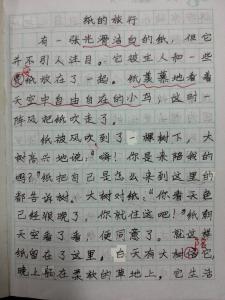 纸的旅行
有一张光滑洁白的纸，但它
并不引人注目。它被主人和一些
纸放在了一起。纸羡慕地看着
天空中自由自在的小鸟，这时一
阵风把纸吹走了。
纸被风吹到了一棵树下，大
树高兴地说：“嗨！你是来陪我的
吗？”纸把自己是怎么来到这里的
都告诉树。大树对纸：“你看天色
已经很晚了，你就住这吧！”纸朝
天空看了看，便同意了。就这样
纸留在了这里。白天有大树它，
晚上躺在柔软的草地上，它生活